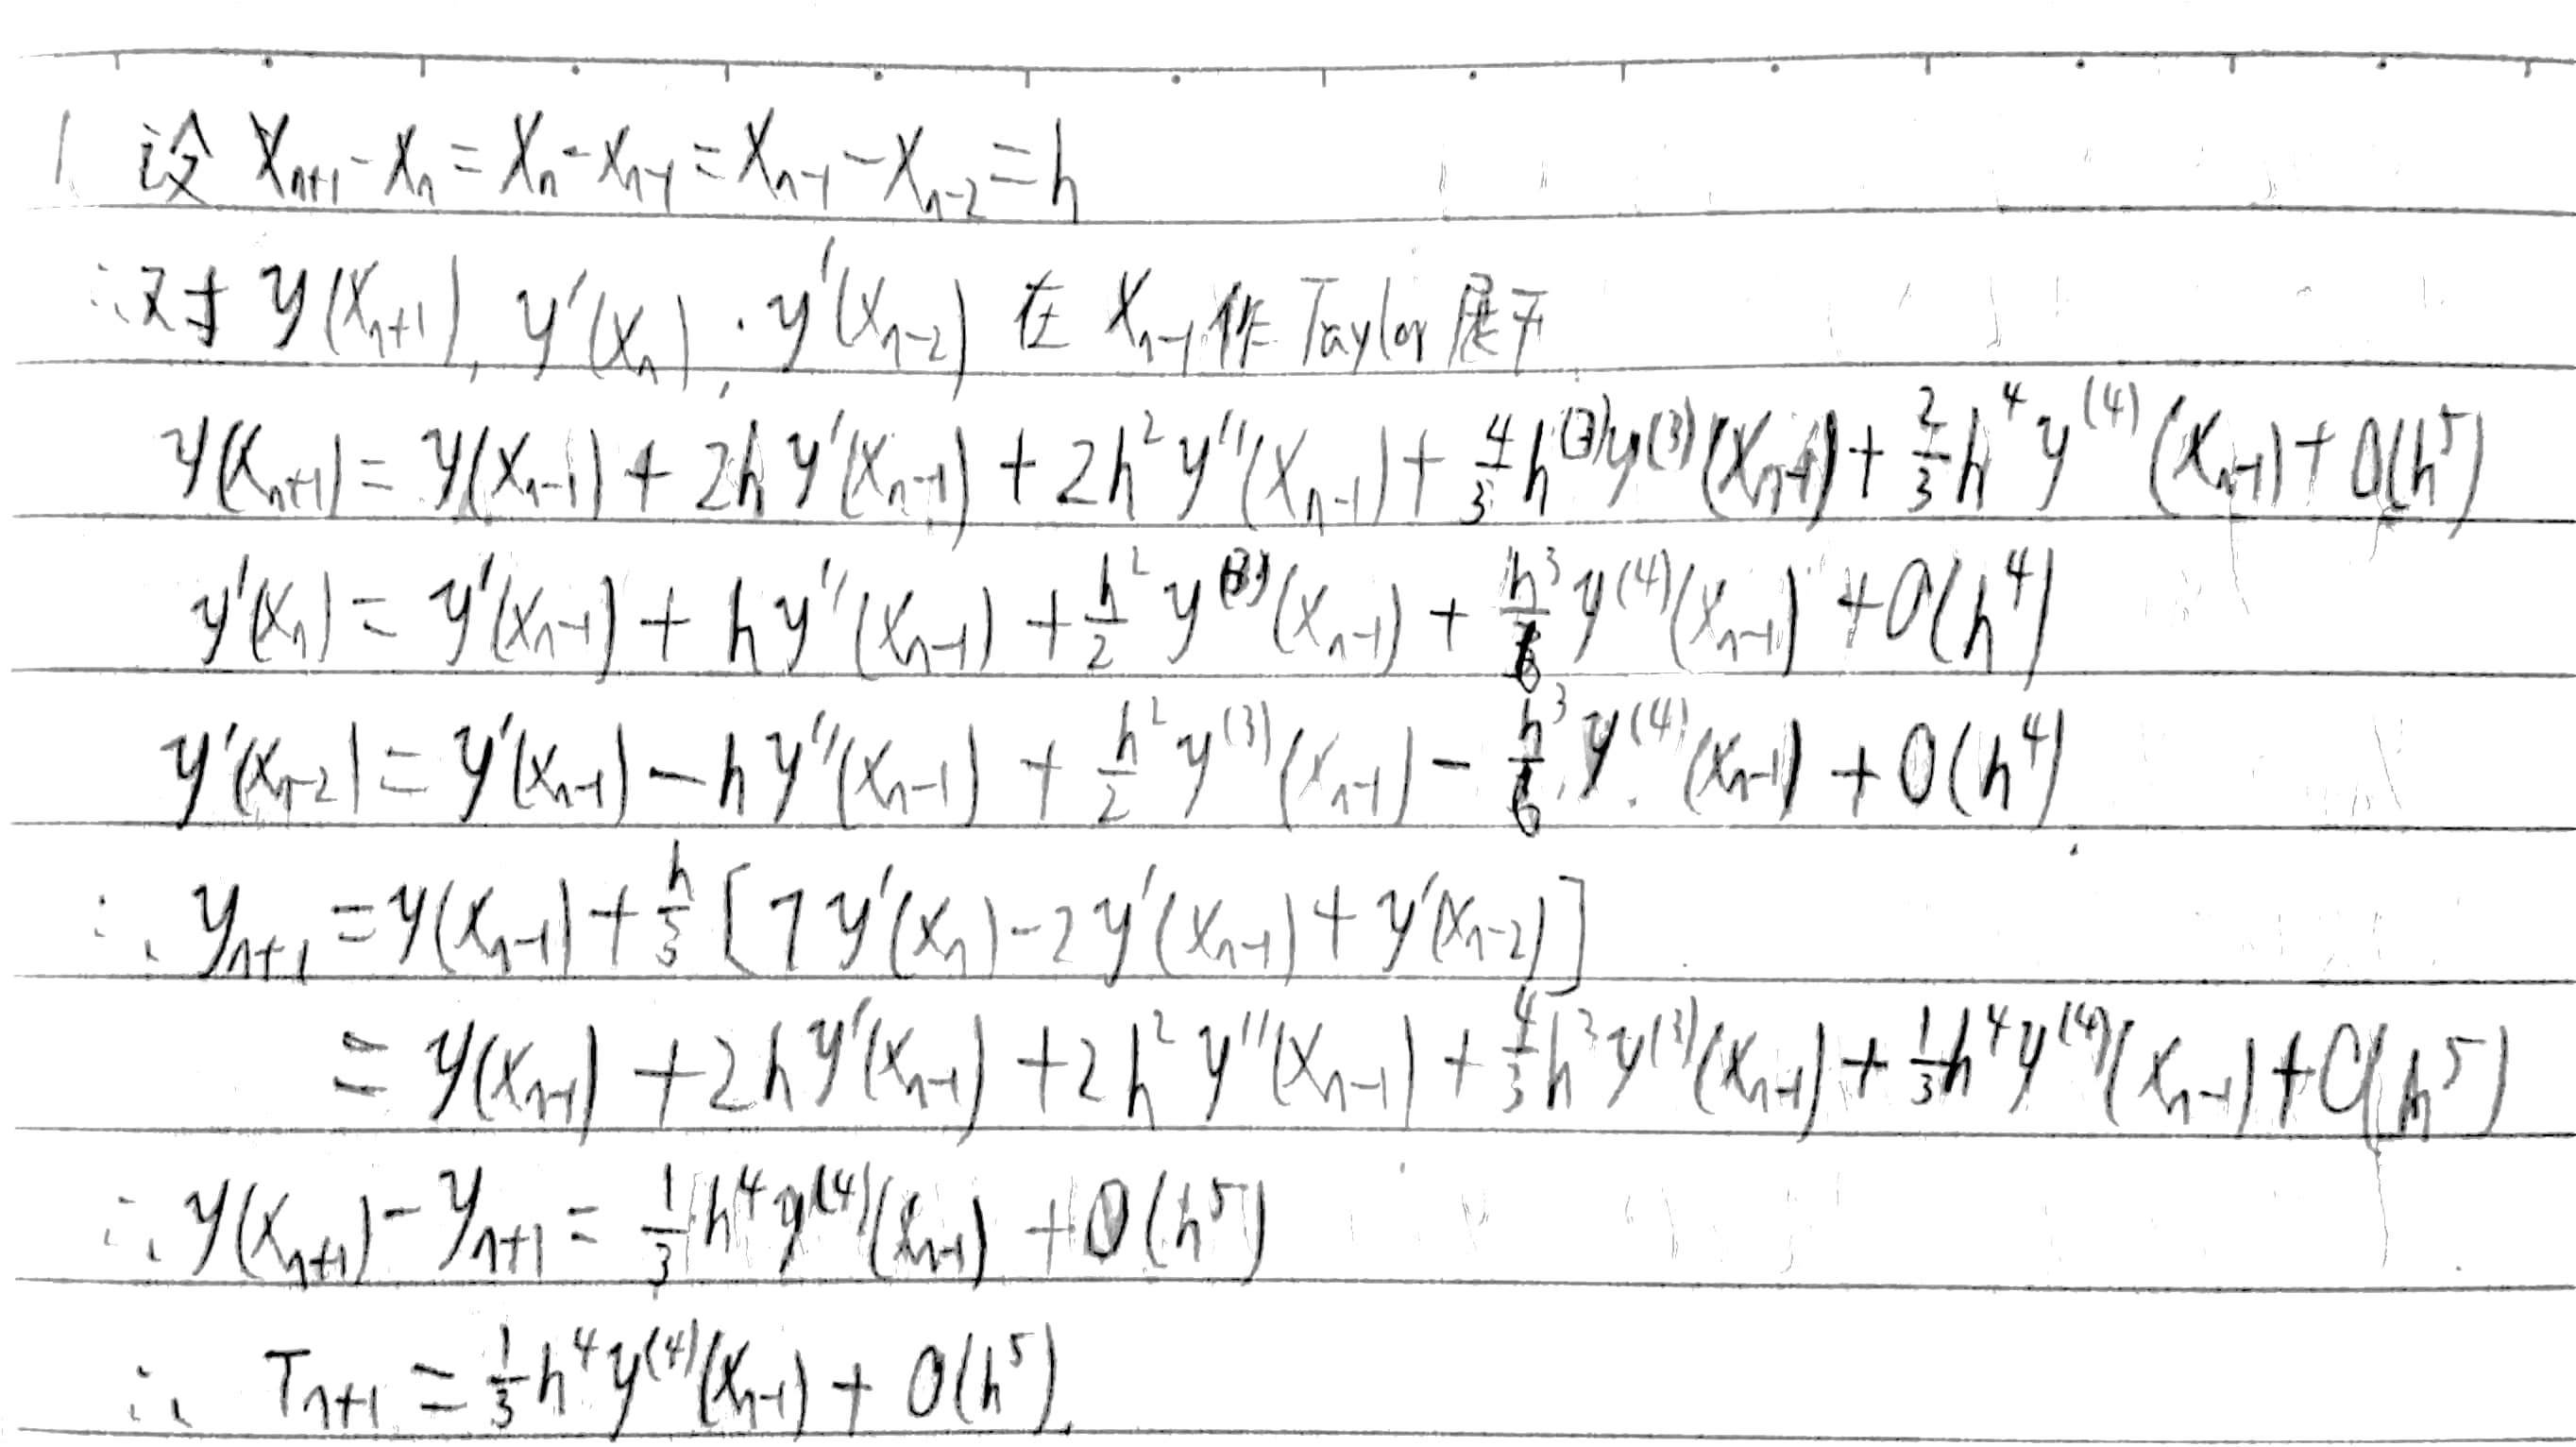 1 设 x_{n+1} - x_n = x_n - x_{n-1} = x_{n-1} - x_{n-2} = h
∴对于 y(x_{n+1}), y'(x_n), y'(x_{n-2}) 在 x_{n-1} 作 Taylor 展开
y(x_{n+1}) = y(x_{n-1}) + 2hy'(x_{n-1}) + 2h^2 y''(x_{n-1}) + \frac{4}{3} h^{(3)} y^{(3)}(x_{n-1}) + \frac{2}{3} h^4 y^{(4)}(x_{n-1}) + O(h^5)
y'(x_n) = y'(x_{n-1}) + hy''(x_{n-1}) + \frac{h^2}{2} y^{(3)}(x_{n-1}) + \frac{h^3}{6} y^{(4)}(x_{n-1}) + O(h^4)
y'(x_{n-2}) = y'(x_{n-1}) - hy''(x_{n-1}) + \frac{h^2}{2} y^{(3)}(x_{n-1}) - \frac{h^3}{6} y^{(4)}(x_{n-1}) + O(h^4)
∴ y_{n+1} = y(x_{n-1}) + \frac{h}{3} [7y'(x_n) - 2y'(x_{n-1}) + y'(x_{n-2})]
= y(x_{n-1}) + 2hy'(x_{n-1}) + 2h^2 y''(x_{n-1}) + \frac{4}{3} h^3 y^{(3)}(x_{n-1}) + \frac{1}{3} h^4 y^{(4)}(x_{n-1}) + O(h^5)
∴ y(x_{n+1}) - y_{n+1} = \frac{1}{3} h^4 y^{(4)}(x_{n-1}) + O(h^5)
∴ T_{n+1} = \frac{1}{3} h^4 y^{(4)}(x_{n-1}) + O(h^5).